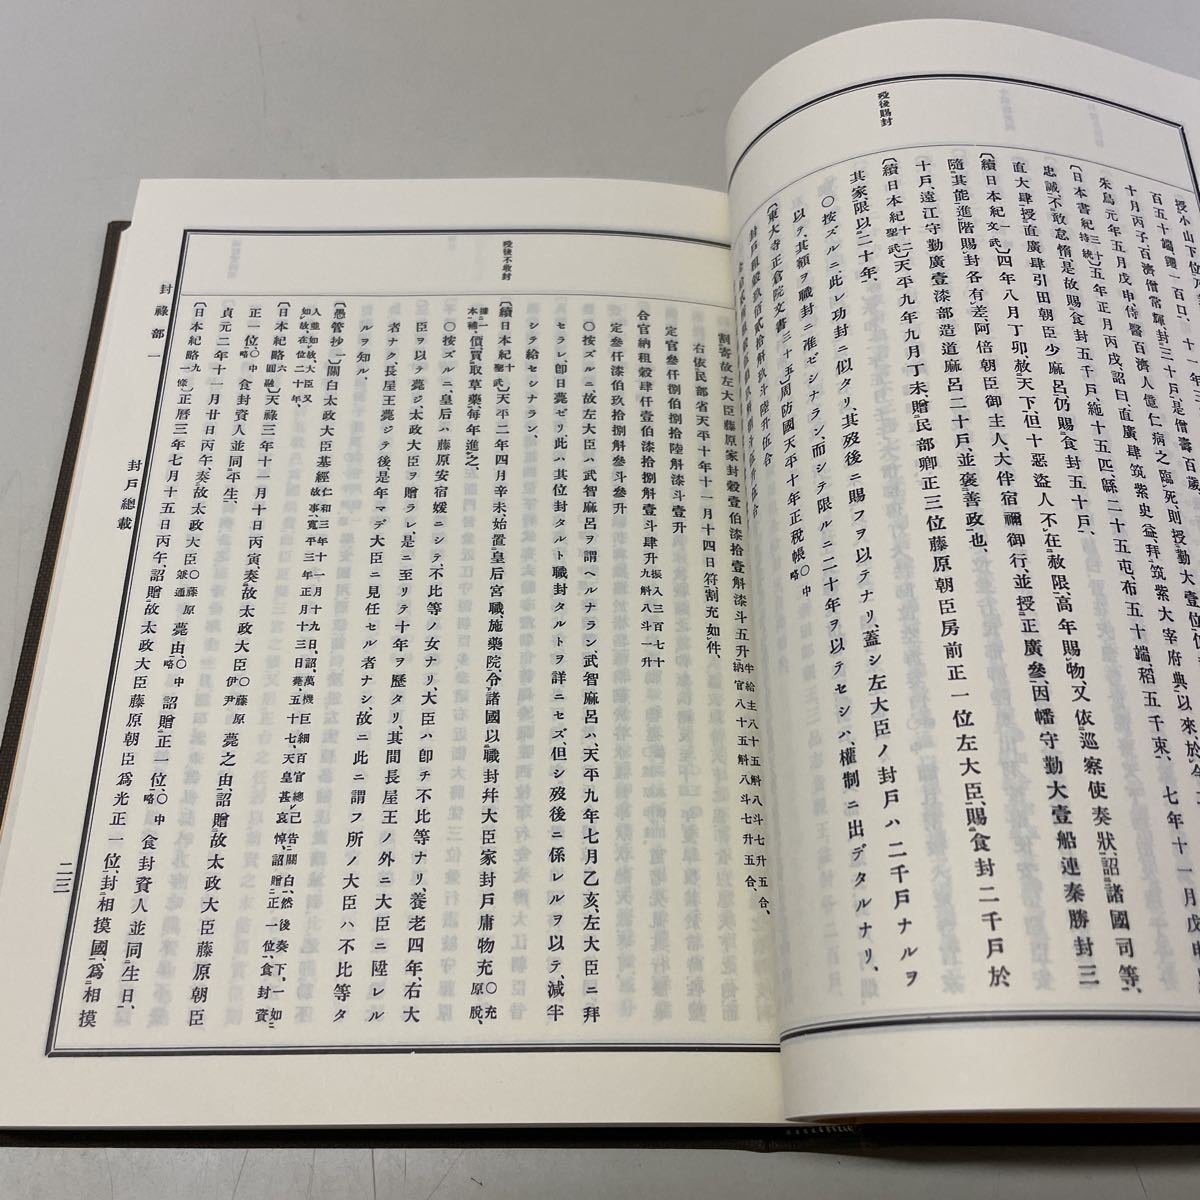 歿後賜封
授小山下位、乃
百五十端、鍬一百口、
十月丙子、百濟僧常輝封三十戸、是僧壽百歲、
朱鳥元年五月戊申、侍醫百濟人億仁病之臨死、則授勤大壹位、
〔日本書紀 三十 持統〕五年正月丙戌、詔曰、直廣肆筑紫史益、拜筑紫大宰府典以來、於今
忠誠、不敢怠惰、是故賜食封五十戸、絁十五匹、緜二十五屯、布五十端、稻五千束、七年十一月戊申
直大肆授直廣肆引田朝臣少麻呂、仍賜食封五十戸、
〔續日本紀 一 文武〕四年八月丁卯、赦天下、但十惡盜人、不在赦限、高年賜物、又依巡察使奏狀、詔諸國司等、
隨其能進階賜封各有差、阿倍朝臣御主人、大伴宿禰御行並授正廣參、因幡守勤大壹船連秦勝封三
十戸、遠江守勤廣壹漆部造道麻呂二十戸、並褒善政也、
〔續日本紀 十二 聖武〕天平九年九月丁未、贈民部卿正三位藤原朝臣房前正一位左大臣、賜食封二千戸於
其家、限以二十年、
〇按ズルニ、此レ功封ニ似タリ、其歿後ニ賜フヲ以テナリ、蓋シ左大臣ノ封戸ハ二千戸ナルヲ
以テ、其額ヲ職封ニ准ゼシナラン、而シテ限ルニ二十年ヲ以テセシハ、權制ニ出デタルナリ、
〔東大寺正倉院文書 三十五〕周防國天平十年正稅帳〇中略
歿後不收封
割寄故左大臣藤原家封穀壹伯漆拾壹斛漆斗五升 半給主八十五斛八斗七升五合、納官八十五斛八斗七升五合、
右依民部省天平十年十一月十四日符割充如件、
定官參仟捌伯捌拾陸斛漆斗壹升
合官納租穀肆仟壹伯漆拾捌斛壹斗肆升 振入三百七十九斛八斗一升
定參仟漆伯玖拾捌斛參斗參升
〇按ズルニ、故左大臣ハ武智麻呂ヲ謂ヘルナラン、武智麻呂ハ、天平九年七月乙亥、左大臣ニ拜
セラレ、卽日薨ゼリ、此ハ其位封タルト職封タルトヲ詳ニセズ、但シ歿後ニ係レルヲ以テ、減半
シテ給セシナラン、
〔續日本紀 十 聖武〕天平二年四月辛未、始置皇后宮職施藥院、令諸國以職封幷大臣家封戸庸物充〇充原脫、據一本補、價、買取草藥每年進之、
〇按ズルニ、皇后ハ藤原安宿媛ニシテ、不比等ノ女ナリ、大臣ハ卽チ不比等ナリ、養老四年、右大
臣ヲ以テ薨ジ、太政大臣ヲ贈ラレ、是ニ至リテ十年ヲ歷タリ、其間長屋王ノ外ニ大臣ニ陞レル
者ナク、長屋王薨ジテ後是年マデ大臣ニ見任セル者ナシ、故ニ此ニ謂フ所ノ大臣ハ不比等タ
ルヲ知ル、
〔愚管抄 一〕關白太政大臣基經 仁和三年十一月十九日、詔、萬機巨細、百官總己、皆關白、然後奏下、一如故事、寬平三年正月十三日薨、五十七、天皇甚哀悼、詔贈正一位、食封資人並如故、大臣又如故、在位二十年、
〔日本紀略 六 圓融〕天祿三年十一月十日丙寅、奏故太政大臣〇藤原伊尹薨之由、詔贈故太政大臣藤原朝臣
正一位、〇中略食封資人並同平生、
貞元二年十一月廿日丙午、奏故太政大臣〇藤原兼通薨由、〇中略詔贈正一位、〇中略食封資人並同生日、
〔日本紀略 九 一條〕正曆三年七月十五日丙午、詔贈故太政大臣藤原朝臣爲光正一位、封相摸國、爲相摸
封祿部一
封戸總載
二三